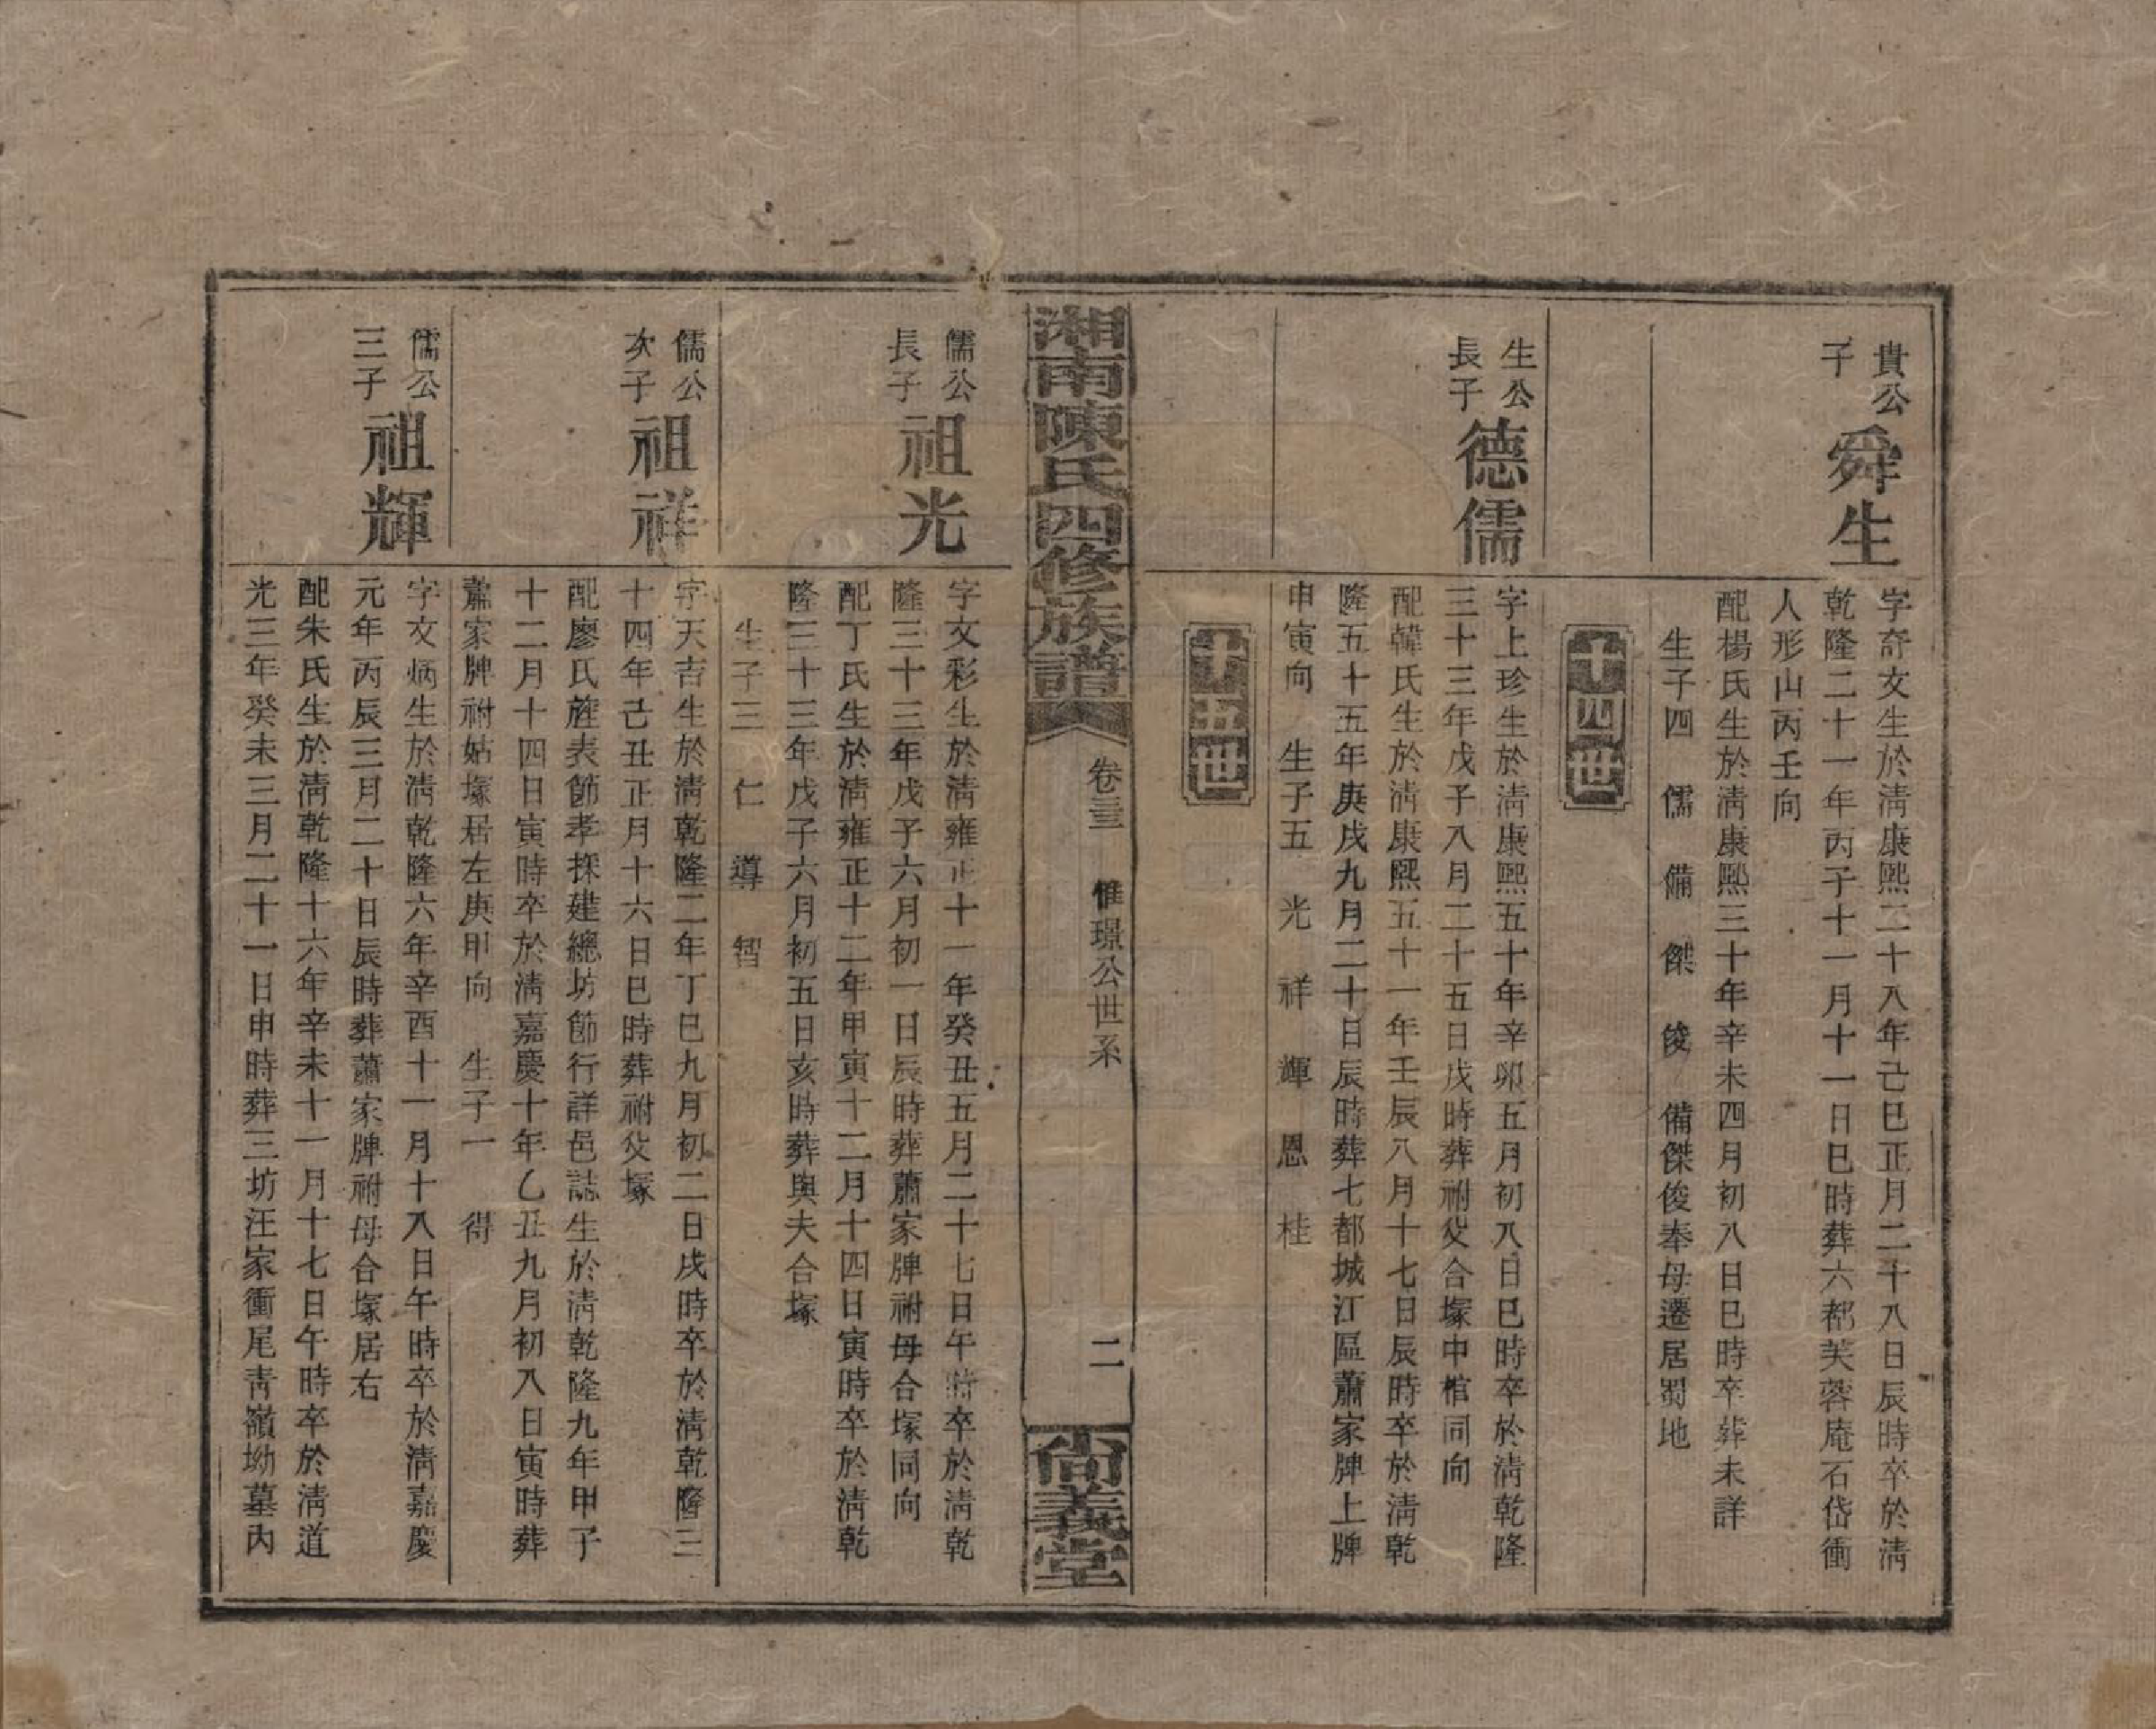 貴公
子
舜生
字奇文生於清康熙二十八年己巳正月二十八日辰時卒於清
乾隆二十一年丙子十一月十一日巳時葬六都芙蓉庵石岱衝
人形山丙壬向
配楊氏生於清康熙三十年辛未四月初八日巳時卒葬未詳
生子四 儒 備 傑 俊 備傑俊奉母遷居蜀地
十四世
生公
長子
德儒
字上珍生於清康熙五十年辛卯五月初八日巳時卒於清乾隆
三十三年戊子八月二十五日戌時葬祔父合塚中棺同向
配韓氏生於清康熙五十一年壬辰八月十七日辰時卒於清乾
隆五十五年庚戌九月二十日辰時葬七都城江區蕭家牌上牌
申寅向 生子五 光 祥 輝 恩 桂
十五世
湘南陳氏四修族譜
卷三 惟璟公世系
二
尚義堂
儒公
長子
祖光
字文彩生於清雍正十一年癸丑五月二十七日午時卒於清乾
隆三十三年戊子六月初一日辰時葬蕭家牌祔母合塚同向
配丁氏生於清雍正十二年甲寅十二月十四日寅時卒於清乾
隆三十三年戊子六月初五日亥時葬與夫合塚
生子三 仁 導 智
儒公
次子
祖祥
字天吉生於清乾隆二年丁巳九月初二日戌時卒於清乾隆三
十四年己丑正月十六日巳時葬祔父塚
配廖氏旌表節孝採建總坊節行詳邑誌生於清乾隆九年甲子
十二月十四日寅時卒於清嘉慶十年乙丑九月初八日寅時葬
蕭家牌祔姑塚居左庚甲向 生子一 得
儒公
三子
祖輝
字文炳生於清乾隆六年辛酉十一月十八日午時卒於清嘉慶
元年丙辰三月二十日辰時葬蕭家牌祔母合塚居右
配朱氏生於清乾隆十六年辛未十一月十七日午時卒於清道
光三年癸未三月二十一日申時葬三坊汪家衝尾靑嶺坳墓內